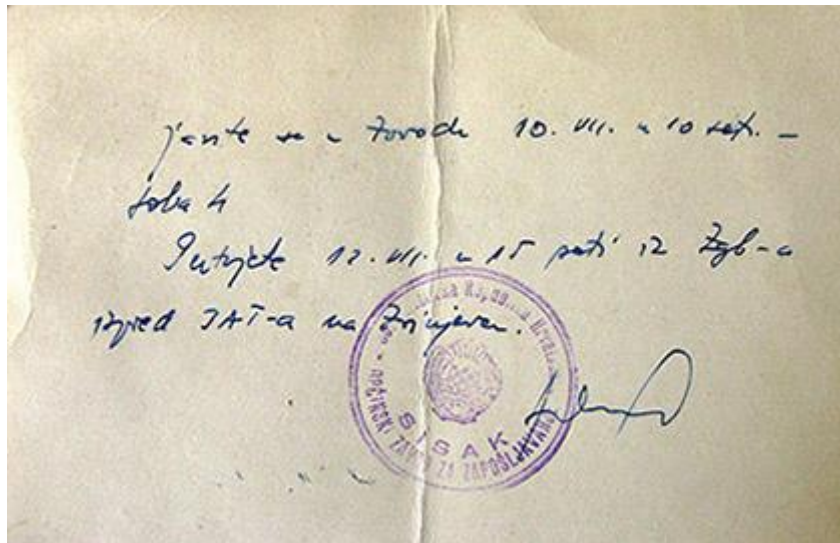 javite se u Zavodu 10. VII. u 10 sati. -
soba 4
Putujete 12. VII. u 15 sati iz Zgb-a
ispred JAT-a na Zrinjevcu.
Socijalistička Republika Hrvatska
OPĆINSKI ZAVOD ZA ZAPOŠLJAVANJE
SISAK